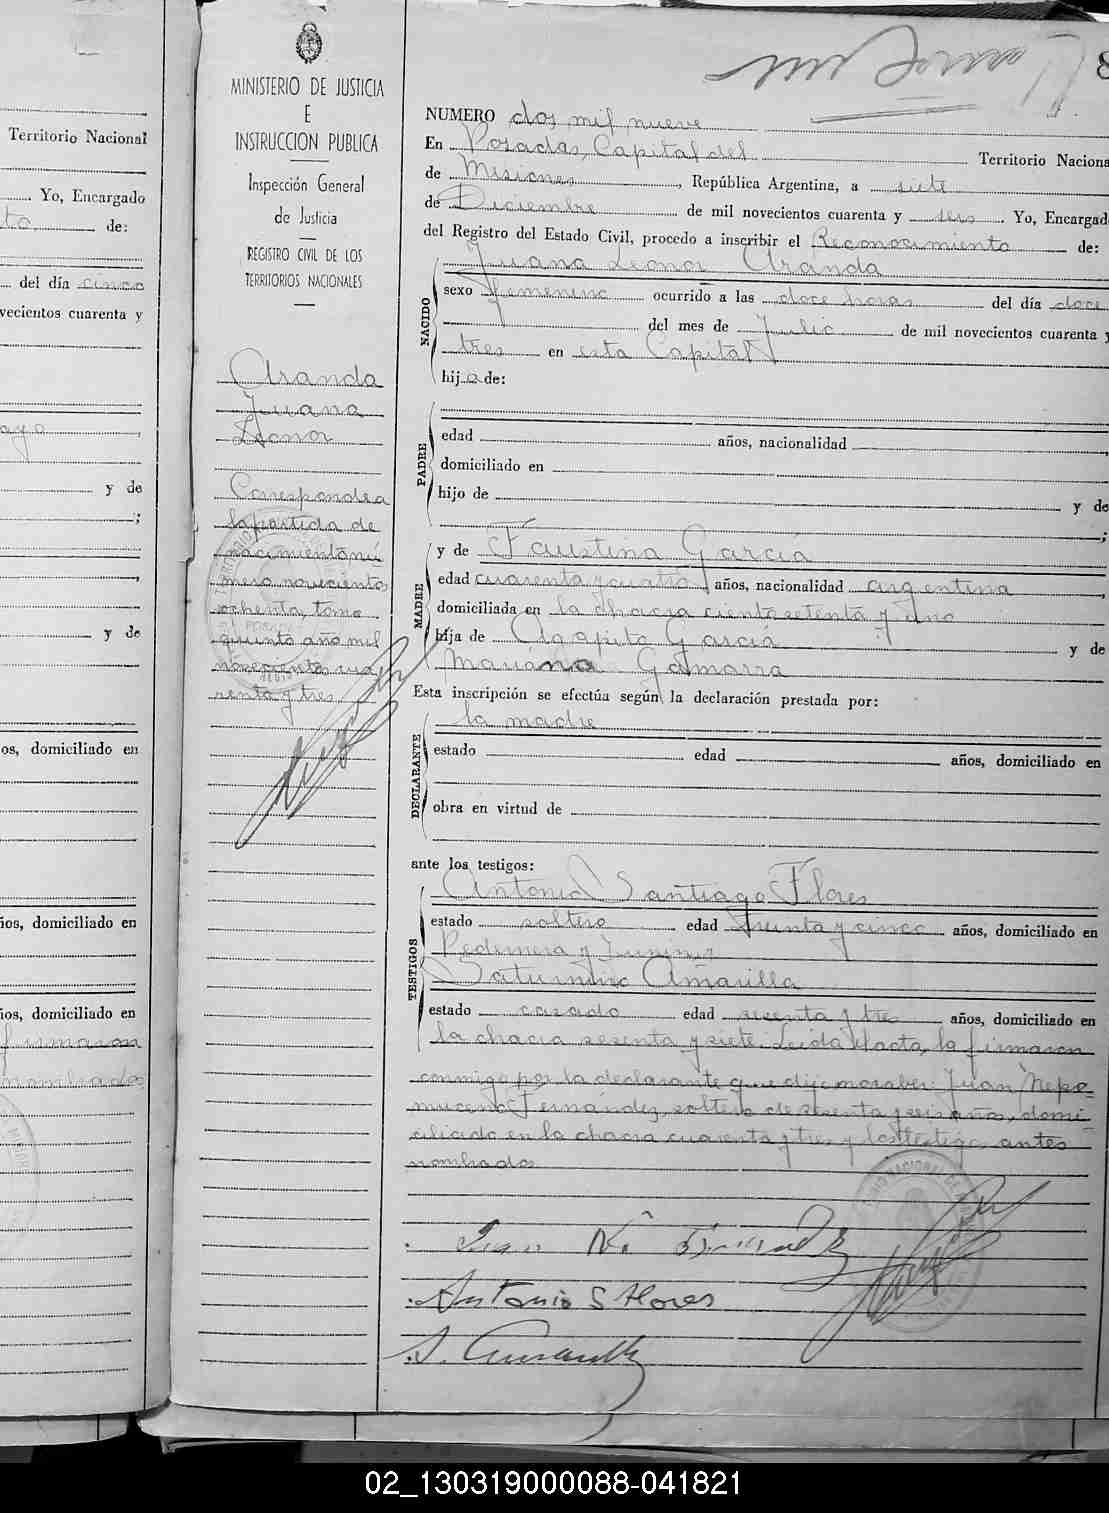 Territorio Nacional
Yo, Encargado
de:
del día cinco
vecientos cuarenta y
y de
;
y de
os, domiciliado en
ños, domiciliado en
ños, domiciliado en
firmaron
nombrados
MINISTERIO DE JUSTICIA
E
INSTRUCCION PUBLICA
Inspección General
de Justicia
REGISTRO CIVIL DE LOS
TERRITORIOS NACIONALES
Aranda
Juana
Leonor
Corresponde a
la partida de
nacimiento nú
mero novecientos
ochenta, tomo
quinto año mil
novecientos cua
renta y tres
8
NUMERO dos mil nueve
En Posadas, Capital del Territorio Naciona
de Misiones, República Argentina, a siete
de Diciembre de mil novecientos cuarenta y seis. Yo, Encargad
del Registro del Estado Civil, procedo a inscribir el Reconocimiento de:
Juana Leonor Aranda
NACIDO
sexo femenino ocurrido a las doce horas del día doce
del mes de Julio de mil novecientos cuarenta y
tres en esta Capital
hija de:
PADRE
edad años, nacionalidad
domiciliado en
hijo de y de
;
MADRE
y de Faustina Garcia
edad cuarenta y cuatro años, nacionalidad argentina
domiciliada en la chacra ciento setenta y uno
hija de Agapito Garcia y de
Mariana Gamarra
Esta inscripción se efectúa según la declaración prestada por:
la madre
DECLARANTE
estado edad años, domiciliado en
obra en virtud de
ante los testigos:
Antonio Santiago Flores
TESTIGOS
estado soltero edad treinta y cinco años, domiciliado en
Pedernera y Junin y
Saturnino Amarilla
estado casado edad sesenta y tres años, domiciliado en
la chacra sesenta y siete. Leida el acta, la firmaron
conmigo por la declarante que dijo no saber: Juan Nepo-
muceno Fernández, soltero de sesenta y seis años, domi-
ciliado en la chacra cuarenta y tres y los testigos antes
nombrados
Juan N. Fernandez
Antonio S Flores
S. Amarilla
02_130319000088-041821